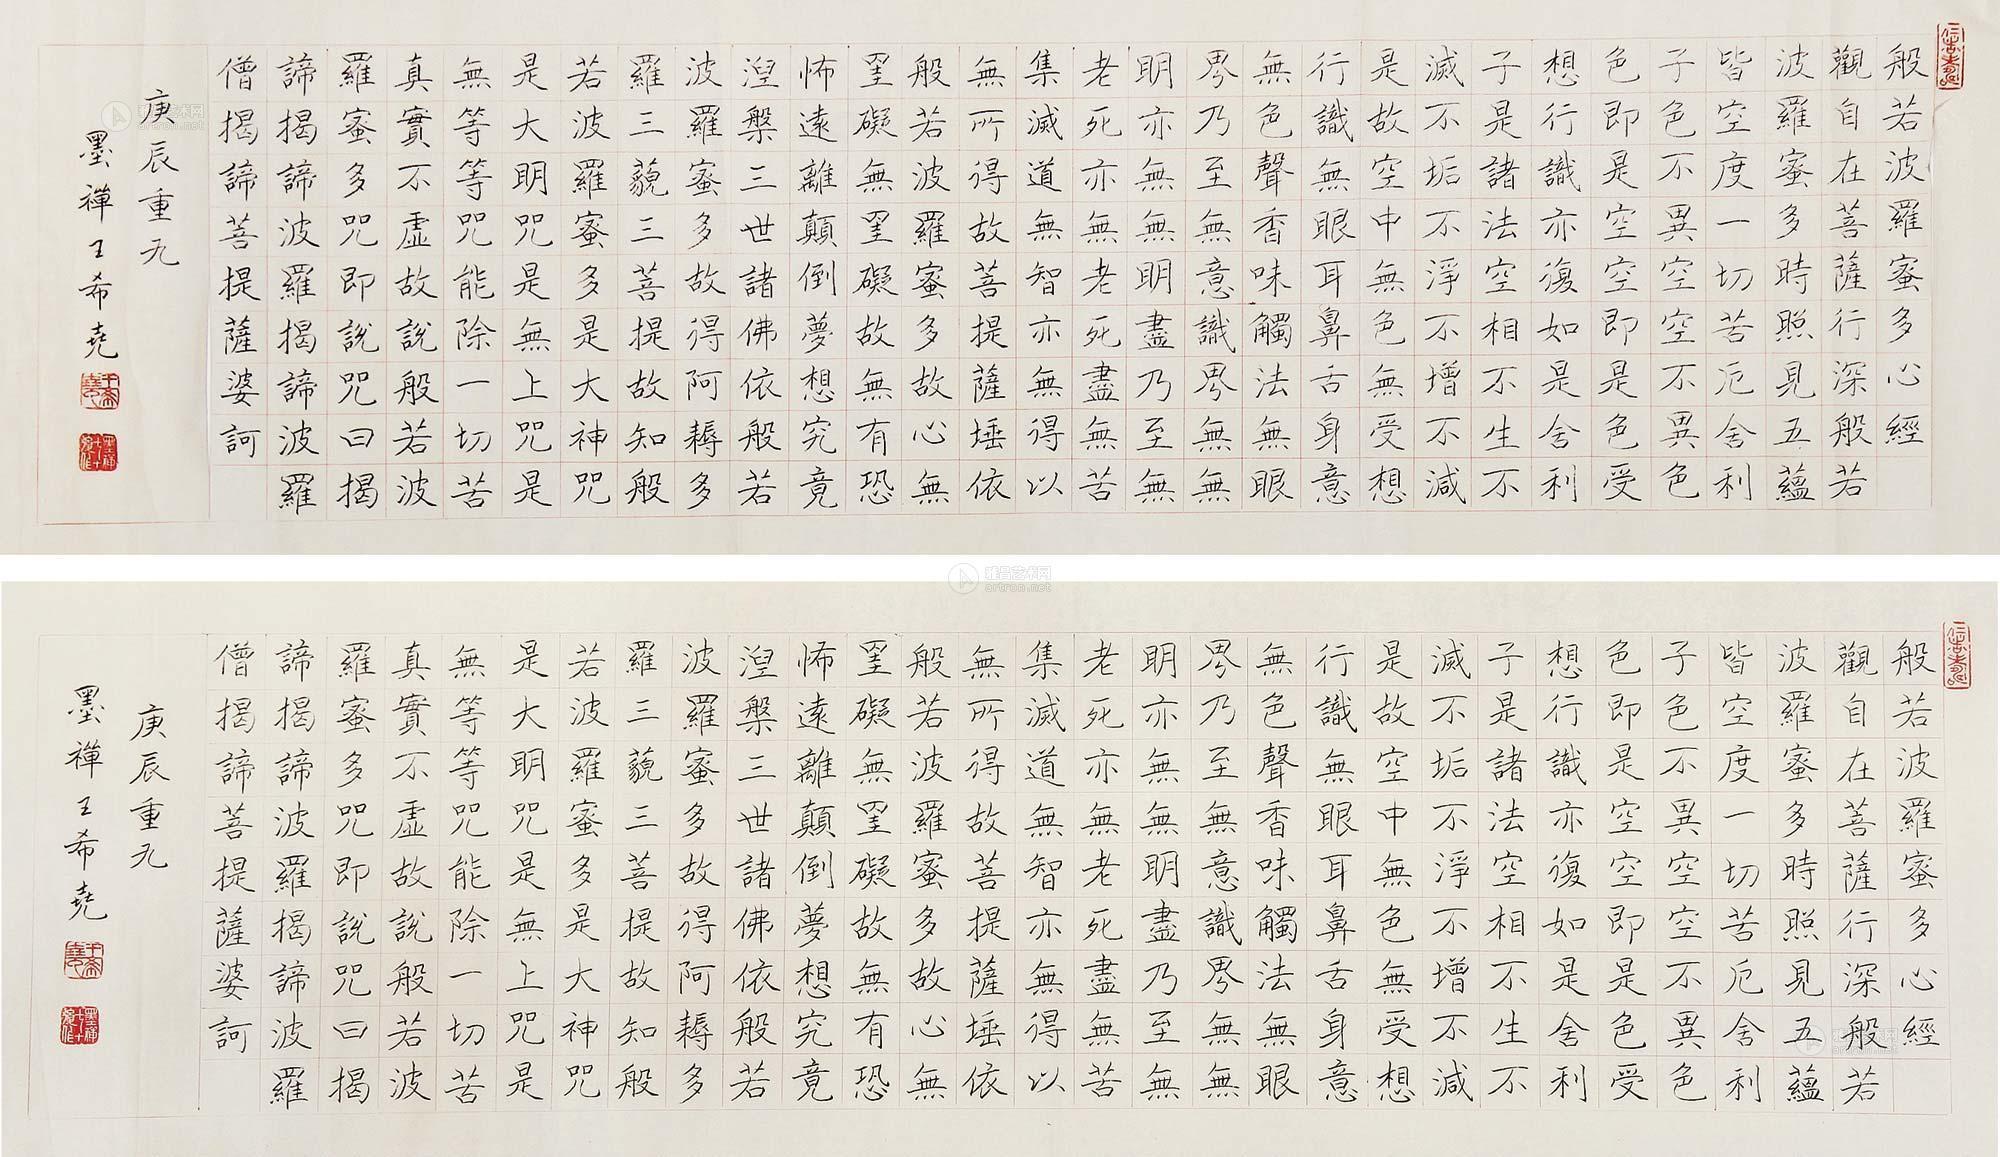 般若波羅蜜多心經
觀自在菩薩行深般若
波羅蜜多時照見五蘊
皆空度一切苦厄舍利
子色不異空空不異色
色即是空空即是色受
想行識亦復如是舍利
子是諸法空相不生不
滅不垢不淨不增不減
是故空中無色無受想
行識無眼耳鼻舌身意
無色聲香味觸法無眼
界乃至無意識界無無
明亦無無明盡乃至無
老死亦無老死盡無苦
集滅道無智亦無得以
無所得故菩提薩埵依
般若波羅蜜多故心無
罣礙無罣礙故無有恐
怖遠離顛倒夢想究竟
涅槃三世諸佛依般若
波羅蜜多故得阿耨多
羅三藐三菩提故知般
若波羅蜜多是大神咒
是大明咒是無上咒是
無等等咒能除一切苦
真實不虛故說般若波
羅蜜多咒即說咒曰揭
諦揭諦波羅揭諦波羅
僧揭諦菩提薩婆訶
庚辰重九
墨禪王希堯
雅昌艺术网
artron.net
般若波羅蜜多心經
觀自在菩薩行深般若
波羅蜜多時照見五蘊
皆空度一切苦厄舍利
子色不異空空不異色
色即是空空即是色受
想行識亦復如是舍利
子是諸法空相不生不
滅不垢不淨不增不減
是故空中無色無受想
行識無眼耳鼻舌身意
無色聲香味觸法無眼
界乃至無意識界無無
明亦無無明盡乃至無
老死亦無老死盡無苦
集滅道無智亦無得以
無所得故菩提薩埵依
般若波羅蜜多故心無
罣礙無罣礙故無有恐
怖遠離顛倒夢想究竟
涅槃三世諸佛依般若
波羅蜜多故得阿耨多
羅三藐三菩提故知般
若波羅蜜多是大神咒
是大明咒是無上咒是
無等等咒能除一切苦
真實不虛故說般若波
羅蜜多咒即說咒曰揭
諦揭諦波羅揭諦波羅
僧揭諦菩提薩婆訶
庚辰重九
墨禪王希堯